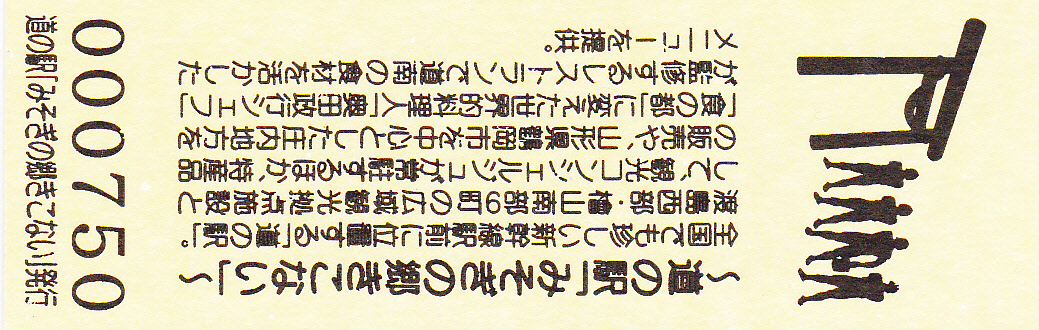 ～道の駅「みそぎの郷きこない」～
全国でも珍しい新幹線駅前に位置する「道の駅」。
渡島西部・檜山南部9町の広域観光拠点施設と
して、観光コンシェルジュが常駐するほか、特産品
の販売や、山形県鶴岡市を中心とした庄内地方を
「食の都」に変えた世界的料理人「奥田政行シェフ」
が監修するレストランで道南の食材を活かした
メニューを提供。
000750
道の駅「みそぎの郷きこない」発行